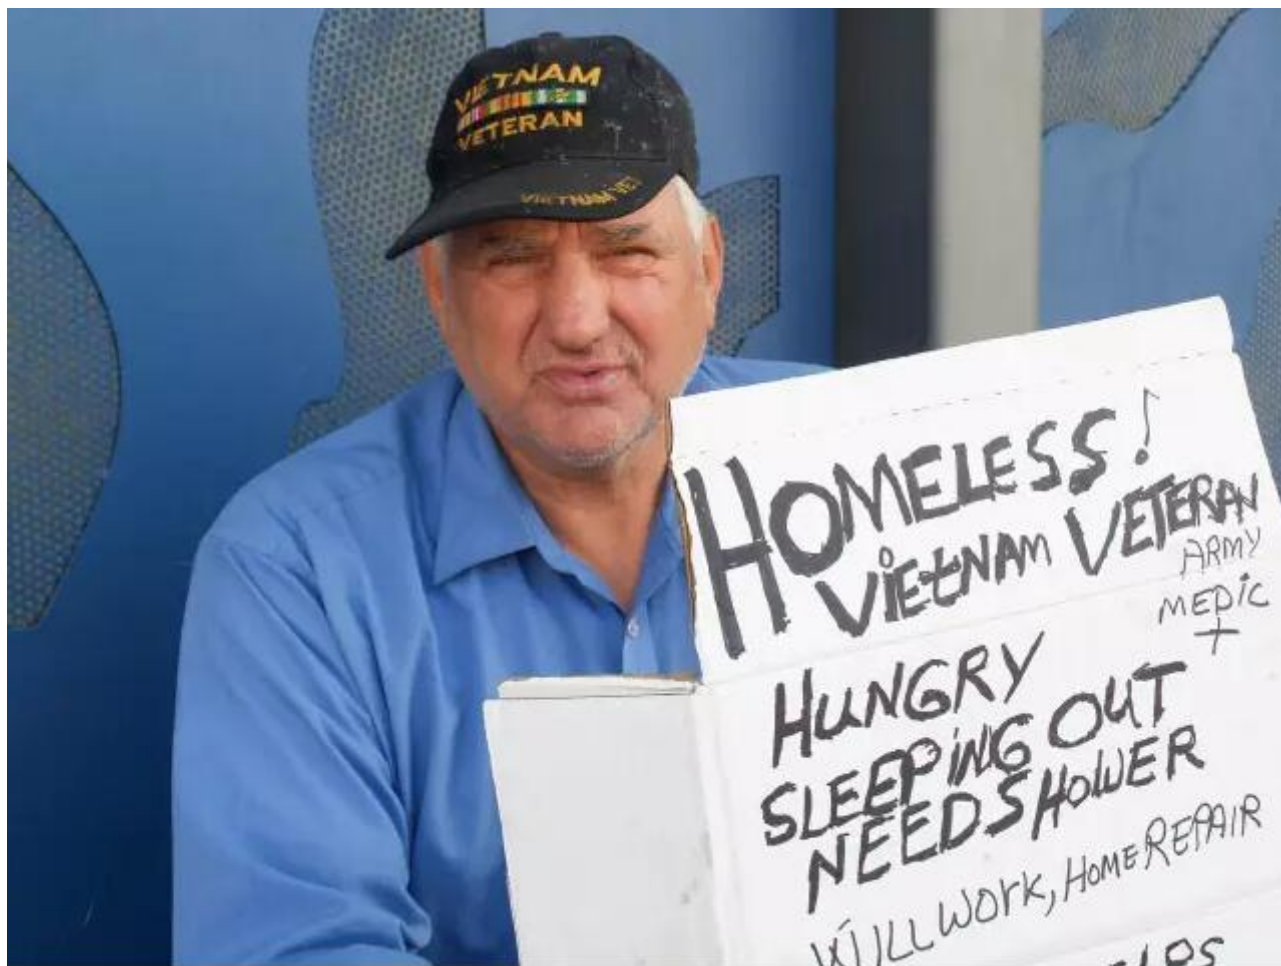 VIETNAM
VETERAN
VIETNAM VET
HOMELESS!
VIETNAM VETERAN
ARMY
MEDIC
+
HUNGRY
SLEEPING OUT
NEED SHOWER
WILL WORK, HOME REPAIR